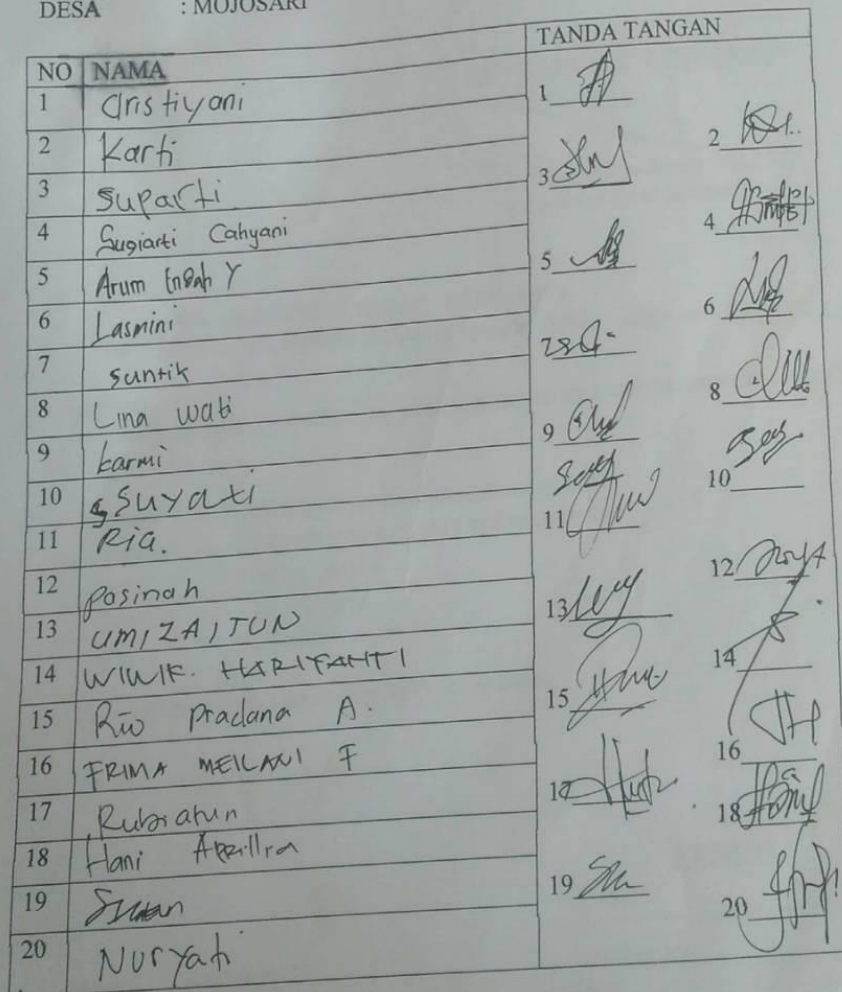 DESA : MOJOSARI
NO NAMA TANDA TANGAN
1 Aristiyani 1
2 Karti 2
3 Suparti 3
4 Sugiarti Cahyani 4
5 Arum Endah Y 5
6 Lasmini 6
7 Suntik 7
8 Lina wati 8
9 karmi 9
10 Suyati 10
11 Ria. 11
12 Pasinah 12
13 UMI ZAITUN 13
14 WIWIK. HARIYANTI 14
15 Rio Pradana A. 15
16 FRIMA MEILANI F 16
17 Rubiatun 17
18 Hani Aprillia 18
19 19
20 Nuryati 20